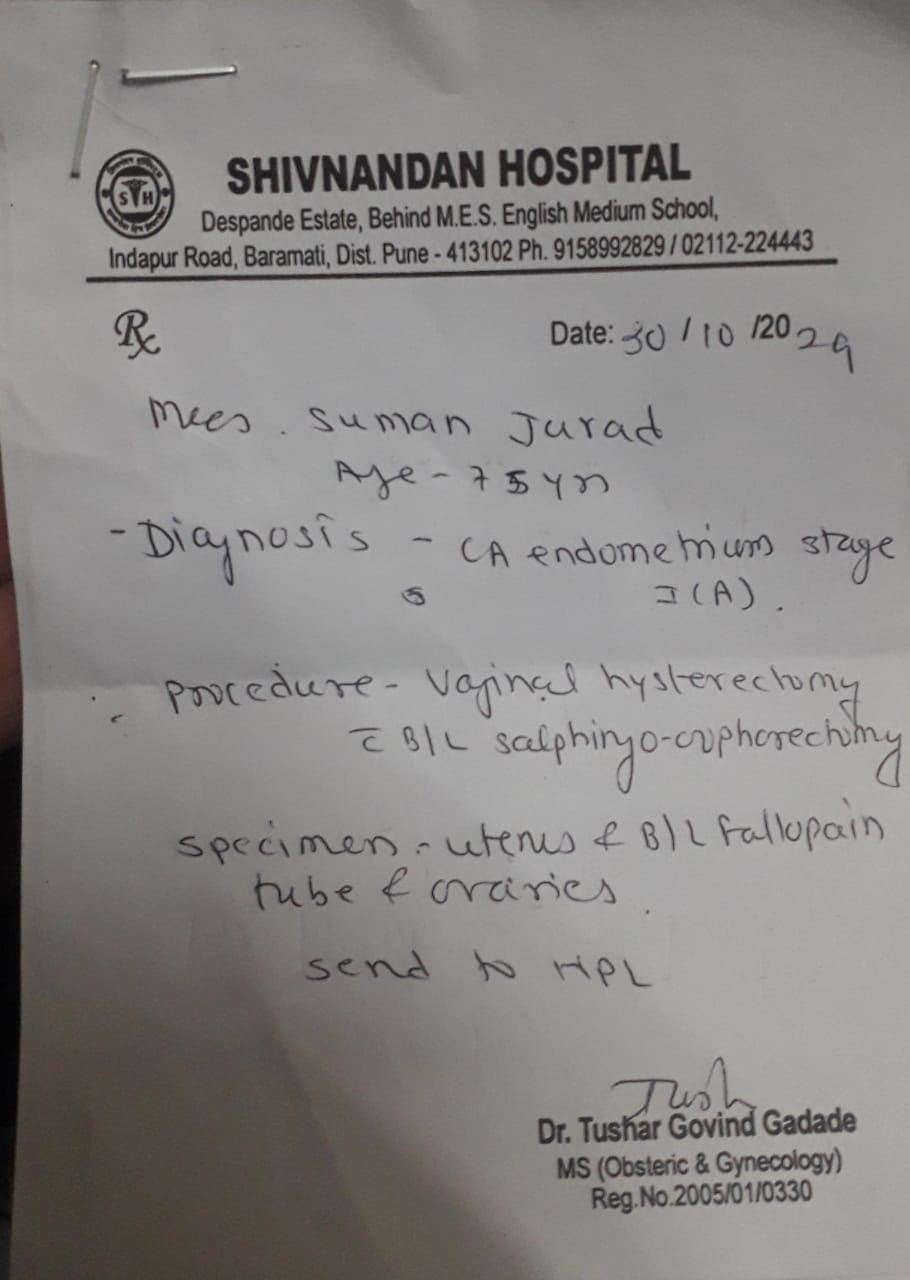 SHIVNANDAN HOSPITAL
Despande Estate, Behind M.E.S. English Medium School,
Indapur Road, Baramati, Dist. Pune - 413102 Ph. 9158992829 / 02112-224443
S H
Rx
Date: 30 / 10 /20 29
Mees. Suman Jurad
Age - 75 yrs
- Diagnosis - CA endometrium stage
I (A).
Procedure - Vaginal hysterectomy
c̄ B/L salphingo-oophorectomy
specimen - uterus & B/L fallopain
tube & ovaries.
send to HPL
Tush
Dr. Tushar Govind Gadade
MS (Obsteric & Gynecology)
Reg.No.2005/01/0330